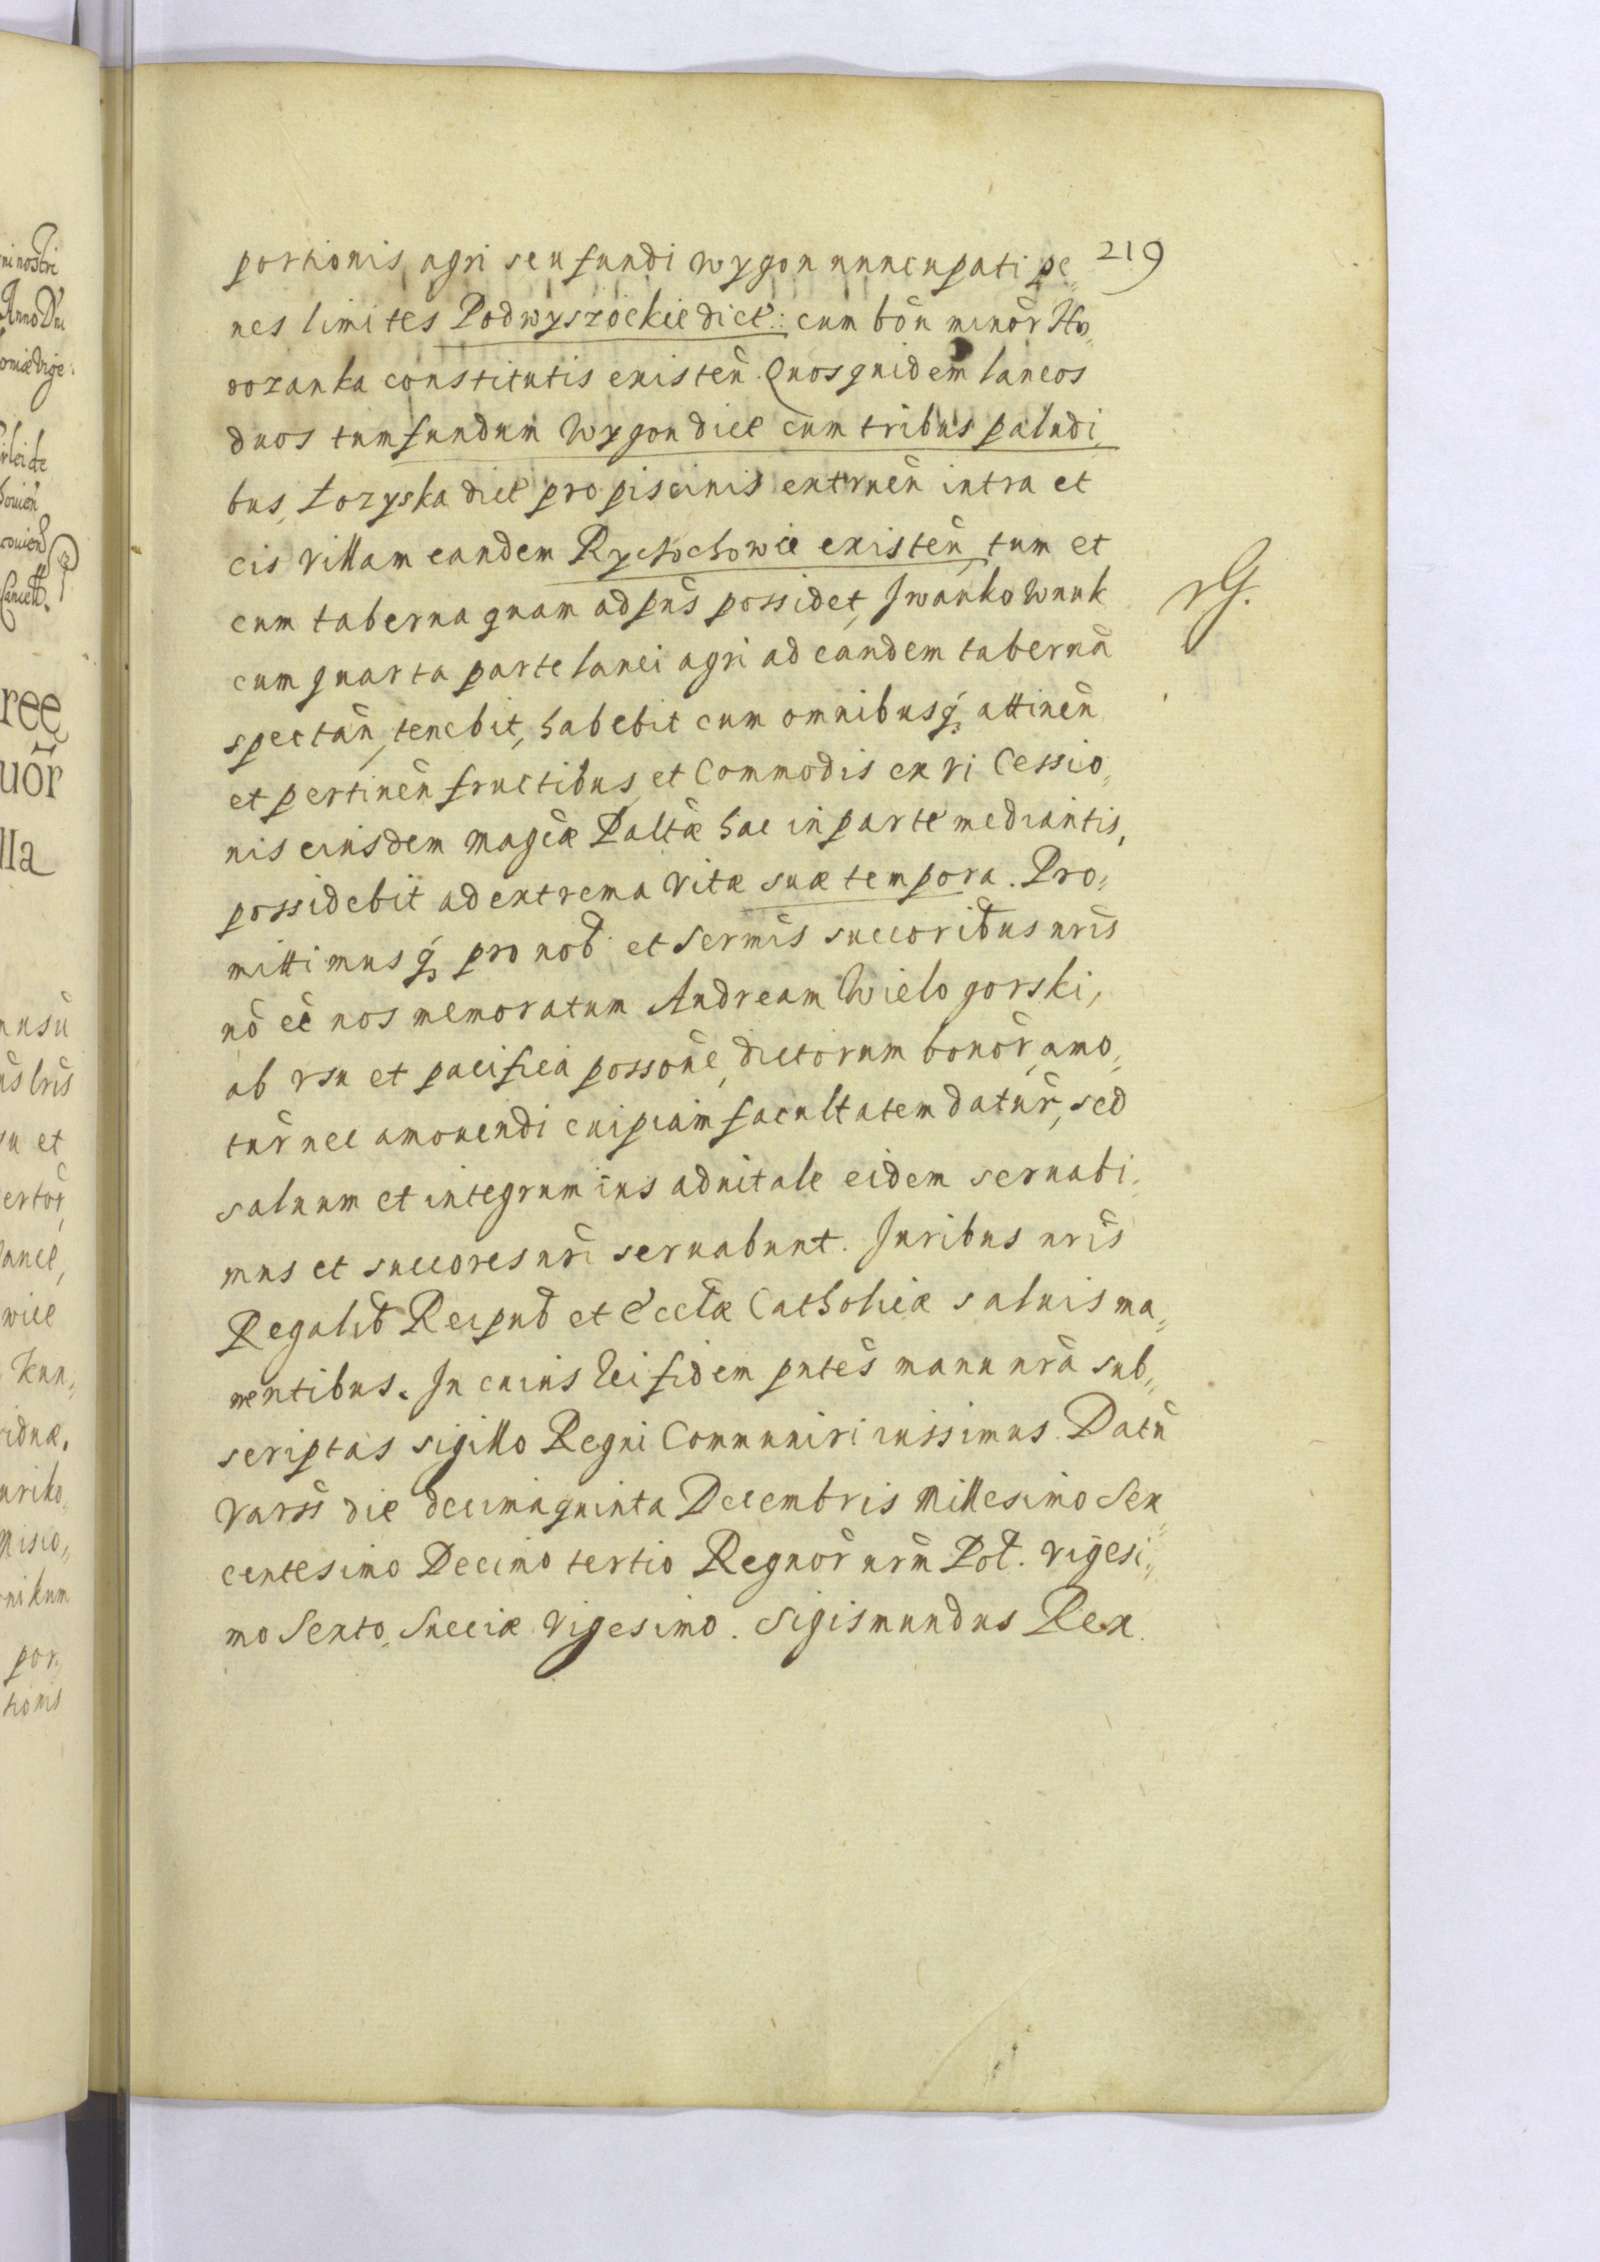 219
portionis agri seu fundi Wygon nuncupati pe„
nes limites Podwyszockie dict: cum bōn minōr Ho„
rozanka constitutis existen̄. Quosquidem laneos
duos tum fundum Wygon dict cum tribus paludi„
bus, Łozyska dict pro piscinis extruen̄ intra et
cis villam eandem Rychochowce existen̄, tum et
cum taberna quam ad pn̄s possidet, Iwanko Wnuk
cum quarta parte lanei agri ad eandem tabernā
spectan̄, tenebit, habebit cum omnibusq̨ attinen̄
et pertinen̄ fructibus, et Commodis ex vi Cessio„
nis eiusdem Magcæ Paltæ hac in parte mediantis,
possidebit ad extrema vitæ suæ tempora. Pro„
mittimusq̨ pro nob et Sermis succoribus nris
nō eē nos memoratum Andream Wielogorski,
ab vsu et pacifica possone, dictorum bonōr, amo„
tūr nec amouendi cuipiam facultatem datūr, sed
saluum et integrum ius aduitale eidem seruabi„
mus et succores nri seruabunt. Iuribus nris
Regalib Reipub et Ecclæ Catholicæ saluis ma„
nentibus. In cuius Rei fidem pntes manu nrā sub„
scriptas sigillo Regni Communiri iussimus. Datū
Vars̄ die decimaquinta Decembris Millesimo Sex„
centesimo Decimo tertio Regnōr nrm Pol. vigesi„
mo Sexto, Sueciæ vigesimo. Sigismundus Rex.
ni nostri
Anno Dni
ree
uōr
lla
su et
ertōr
por
tionis